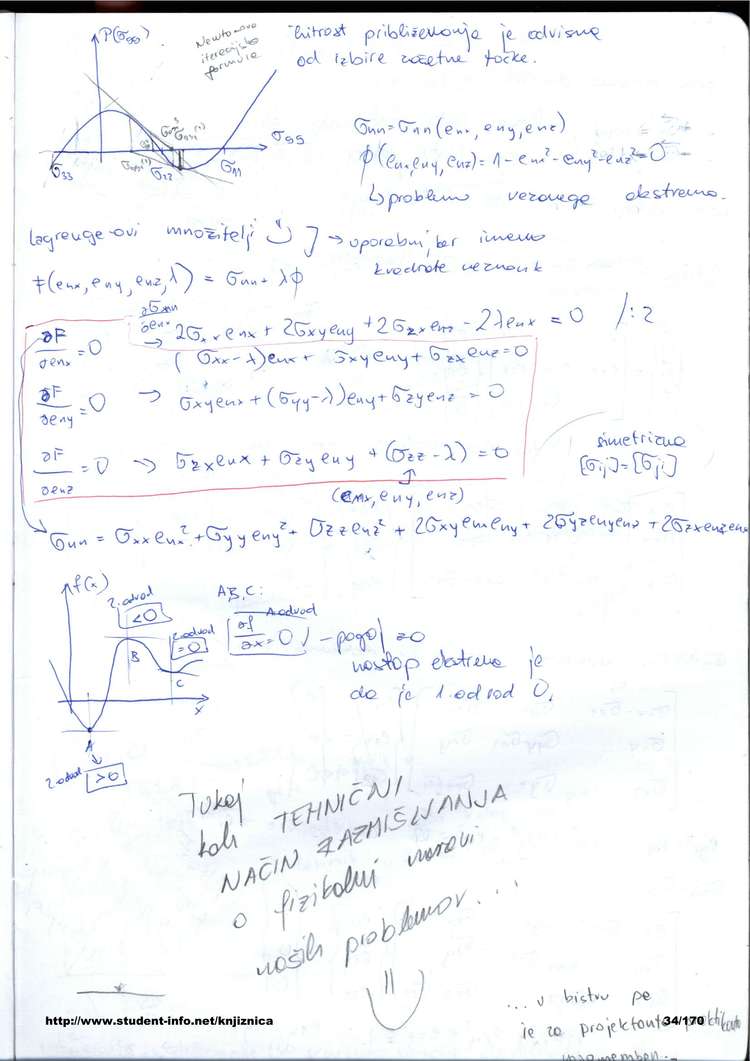 P(σ₉₉)
Newtonova
iteracijska
formula
hitrost približevanja je odvisna
od izbire začetne točke.
σ₃₃ σ₂₂ σ₁₁
σnn = σnn(enx, eny, enz)
ϕ(enx, eny, enz) = 1 - enx² - eny² - enz² = 0
↳ problem vezanega ekstrema.
Lagrange-ovi množitelji → uporabni, ker imamo
kvadrate
F(enx, eny, enz, λ) = σnn + λϕ
∂F/∂enx = 0 → 2σxx enx + 2σxy eny + 2σzx enz - 2λenx = 0 /:2
(σxx - λ)enx + σxy eny + σzx enz = 0
∂F/∂eny = 0 → σxy enx + (σyy - λ)eny + σzy enz = 0
∂F/∂enz = 0 → σzx enx + σzy eny + (σzz - λ) = 0
(enx, eny, enz)
simetrična
[σij] = [σji]
σnn = σxx enx² + σyy eny² + σzz enz² + 2σxy enx eny + 2σyz eny enz + 2σzx enz enx
f(x)
2. odvod
<0
2. odvod
=0
A, B, C:
1. odvod
∂f/∂x = 0
- pogoj
=0
nastop ekstrema je
da je 1. odvod 0.
B
C
x
A
2. odvod >0
Tukaj
TEHNIČNI
NAČIN RAZMIŠLJANJA
o fizikalni naravi
naših problemov...
... v bistvu pa
je za projektanta
http://www.student-info.net/knjiznica
34/170